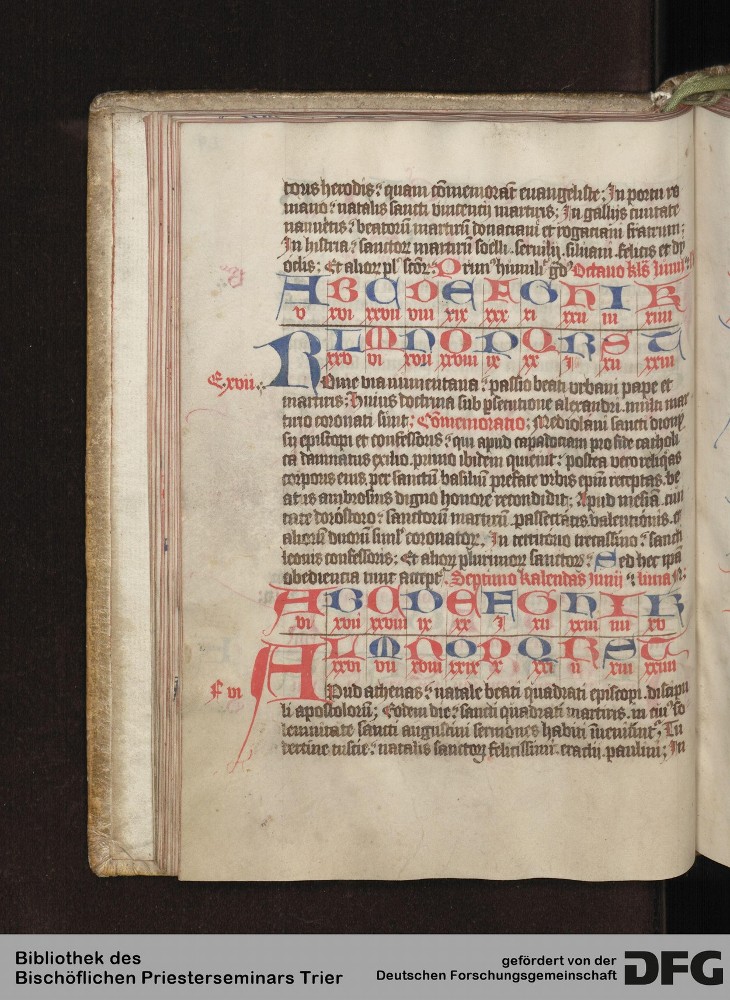 toris herodis: quam cōmemorāt euangeliste; In portu ro
mano: natalis sancti vincencij martiris; In gallijs ciuitate
nannetis: beatorū martirū donaciani et rogaciani fratrum;
In histria: sanctor martirū zoelli. seruilij. siluani. felicis et dy
oclis; Et alior pl' sctor; Octauo kls Iunij
A B C D E F G H I K
v xvi xxvii viii xix xxx xi xxii iii xiiii
L M N O P Q R S T
xxv vi xvii xxviii ix xx i xii xxiii
E xvii
Rome via numentana: passio beati vrbani pape et
martiris: Huius doctrina sub psecutione alexandri. multi mar
tirio coronati sunt; Cōmemoracio; Mediolani sancti dionÿ
sij episcopi et confessoris: qui apud capadociam pro fide catholi
ca damnatus exilio. primo ibidem quieuit: postea vero reliqias
corporis eius. per sanctū basiliū prefate vrbis epm receptas. be
atus ambrosius digno honore recondidit; Apud mesiā. ciui
tate dorostoro: sanctorū martirū. passecratis. valentionis. et
aliorū duorū siml' coronator. In territorio trecassino: sancti
leonis confessoris; Et alior plurimor sanctor: Sed hec ipā
obediencia inut accept'. Septimo kalendas Iunij: luna
A B C D E F G H I K
vi xvii xxviii ix xx i xii xxiii iiii xv
L M N O P Q R S T
xxvi vii xviii xxix x xxi ii xiii xxiiii
F vi
Apud athenas: natale beati quadrati episcopi. discipu
li apostolorū; Eodem die: sancti quadrati martiris. in cui' so
lemnitate sancti augustini sermones habiti īueniūtur; Tu
dertine tuscie: natalis sanctor felicissimi. eraclij. paulini; In
Bibliothek des
Bischöflichen Priesterseminars Trier
gefördert von der
Deutschen Forschungsgemeinschaft
DFG